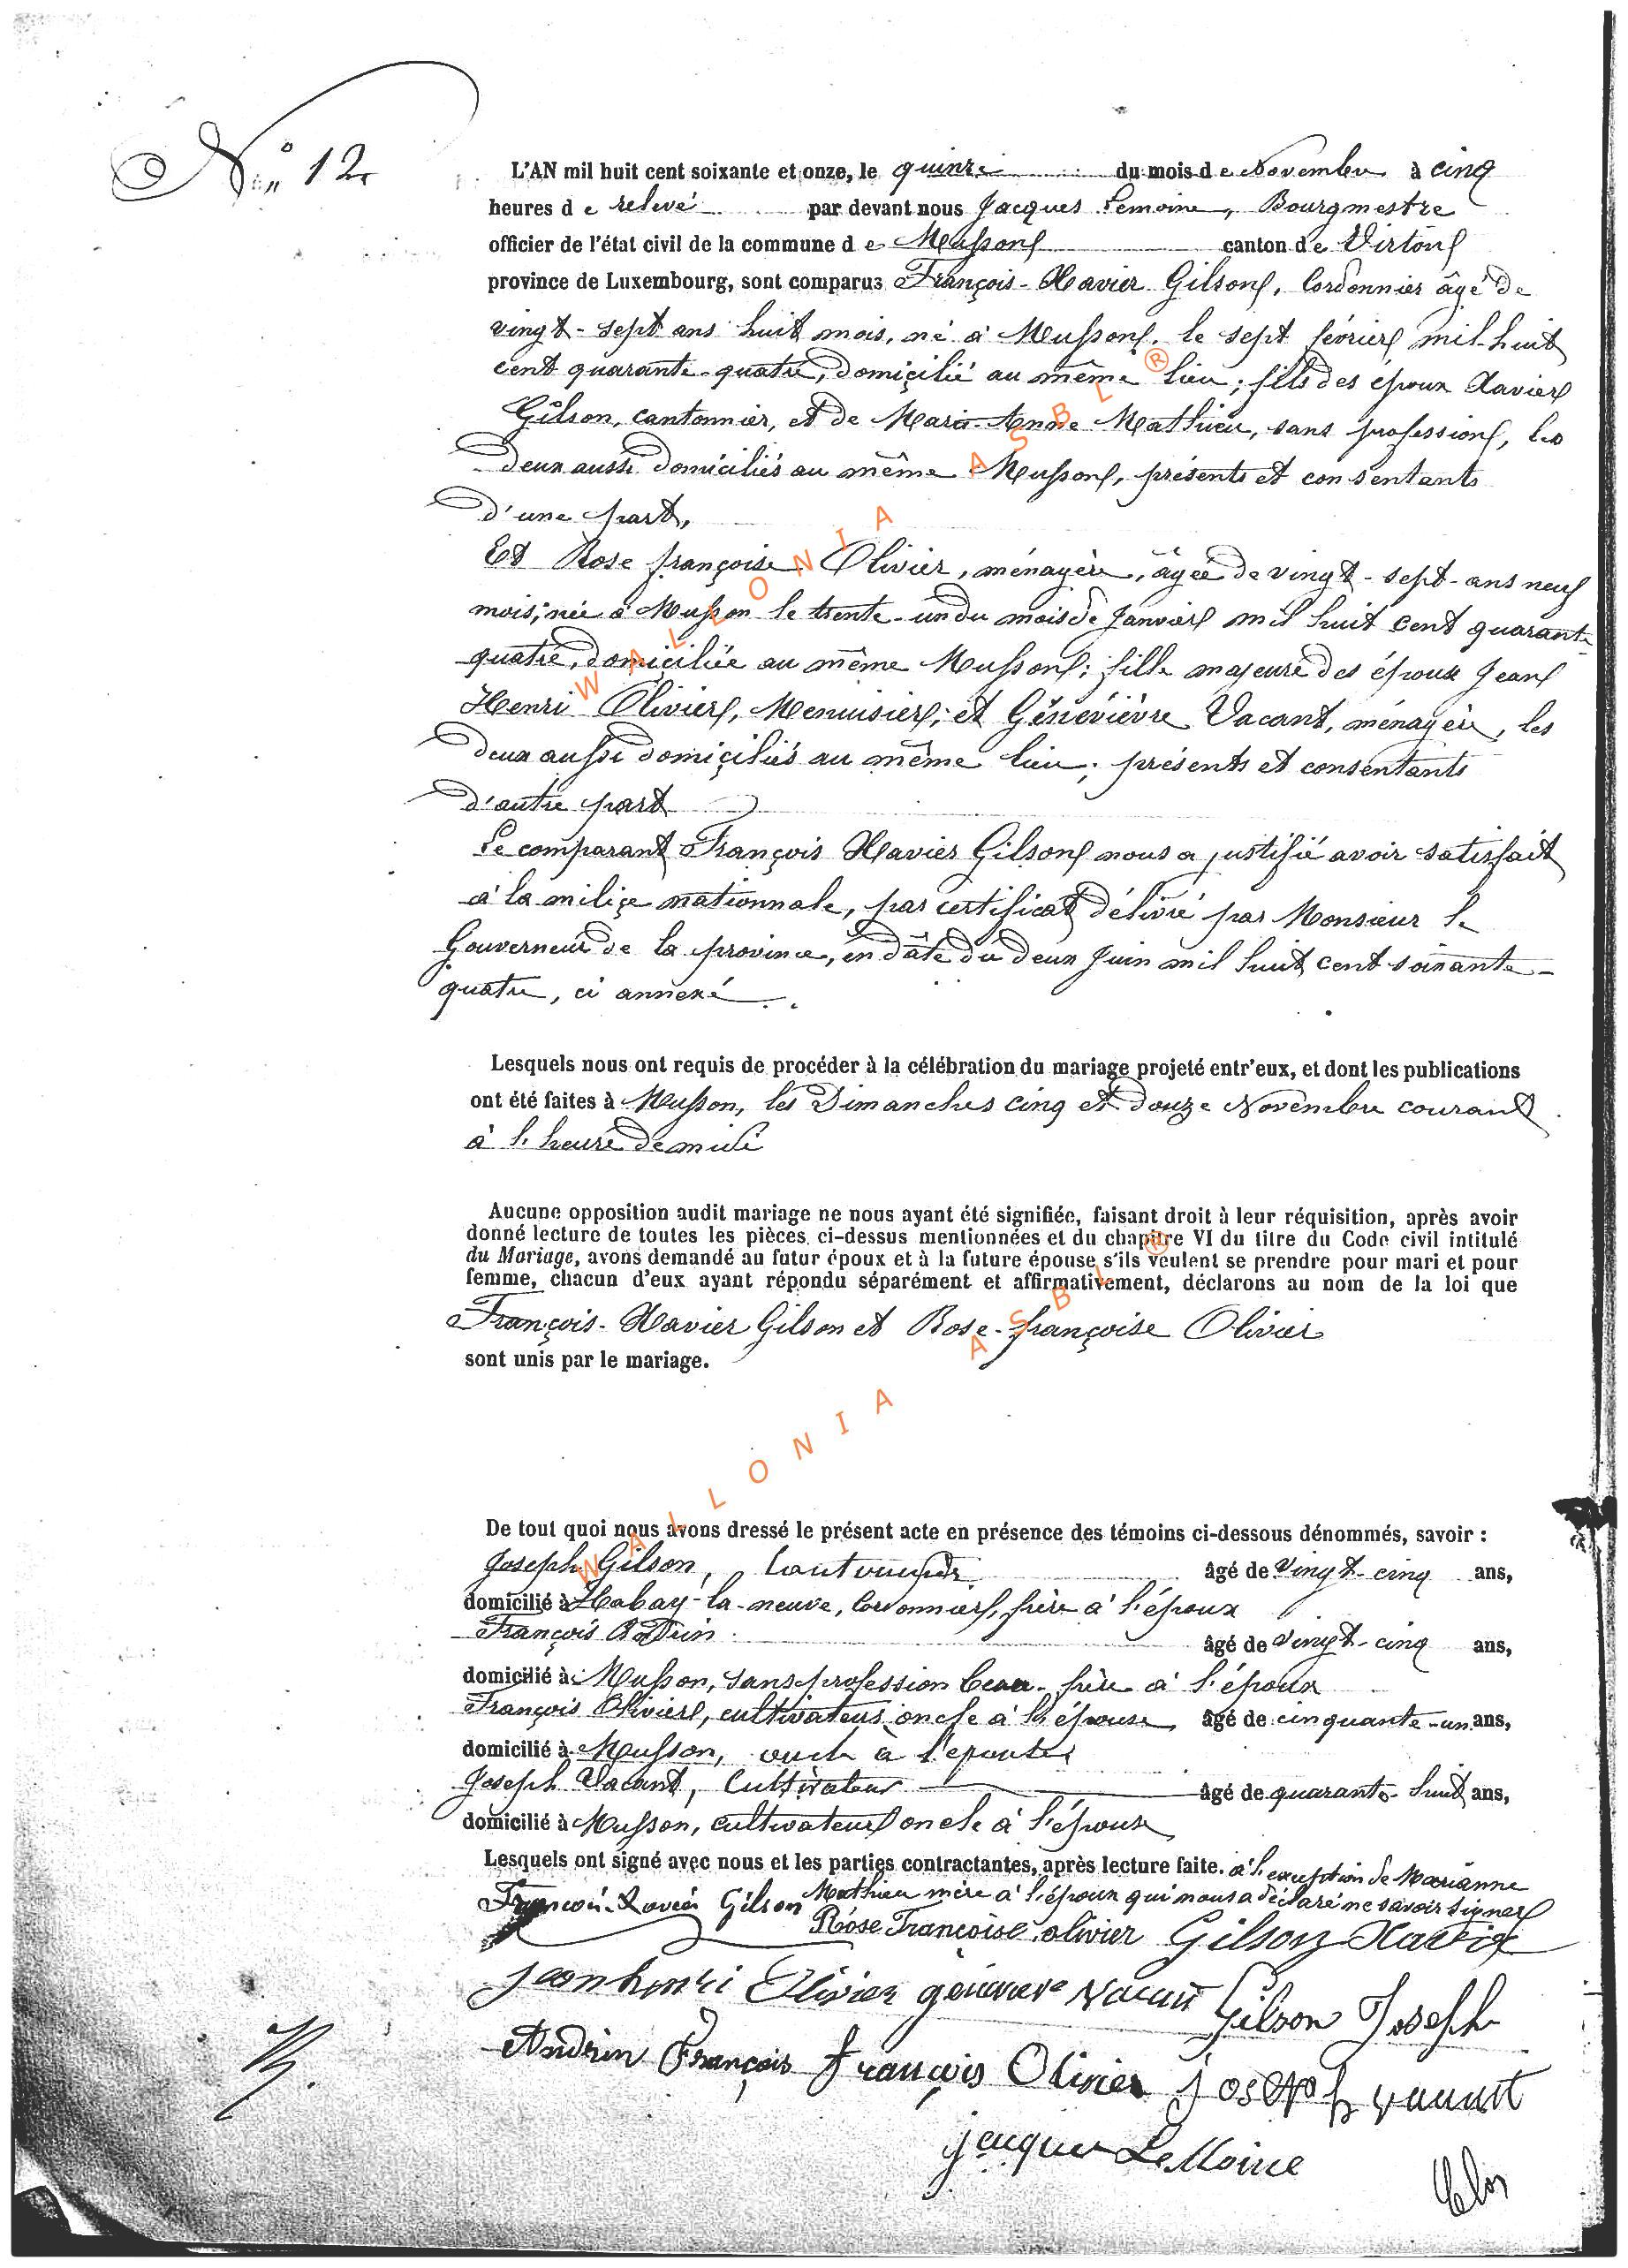 N° 12
L'AN mil huit cent soixante et onze, le quinze du mois de Novembre à cinq
heures de relevé par devant nous Jacques Lemoine, Bourgmestre
officier de l'état civil de la commune de Musson canton de Virton
province de Luxembourg, sont comparus François-Xavier Gilson, Cordonnier âgé de
vingt-sept ans huit mois, né à Musson, le sept février mil huit
cent quarante-quatre, domicilié au même lieu; fils des époux Xavier
Gilson, cantonnier, et de Marie-Anne Mathieu, sans profession, les
deux aussi domiciliés au même Musson, présents et consentants
d'une part,
Et Rose françoise Olivier, ménagère, âgée de vingt-sept-ans neuf
mois, née à Musson le trente-un du mois de Janvier mil huit cent quarante-
quatre, domiciliée au même Musson; fille majeure des époux Jean
Henri Olivier, Menuisier, et Géneviève Vacant, ménagère, les
deux aussi domiciliés au même lieu; présents et consentants
d'autre part
Le comparant François Xavier Gilson nous a justifié avoir satisfait
à la milice nationnale, par certificat délivré par Monsieur le
Gouverneur de la province, en dâte du deux Juin mil huit cent soixante-
quatre, ci annexé.
Lesquels nous ont requis de procéder à la célébration du mariage projeté entr'eux, et dont les publications
ont été faites à Musson, les Dimanches cinq et douze Novembre courant
à l'heure de midi
Aucune opposition audit mariage ne nous ayant été signifiée, faisant droit à leur réquisition, après avoir
donné lecture de toutes les pièces ci-dessus mentionnées et du chapitre VI du titre du Code civil intitulé
du Mariage, avons demandé au futur époux et à la future épouse s'ils veulent se prendre pour mari et pour
femme, chacun d'eux ayant répondu séparément et affirmativement, déclarons au nom de la loi que
François-Xavier Gilson et Rose-françoise Olivier
sont unis par le mariage.
De tout quoi nous avons dressé le présent acte en présence des témoins ci-dessous dénommés, savoir :
Joseph Gilson, âgé de vingt-cinq ans,
domicilié à Habay-la-neuve, Cordonnier, frère à l'époux
François Andrin âgé de vingt-cinq ans,
domicilié à Musson, sans profession beau-frère à l'époux
François Olivier, cultivateur, oncle à l'épouse âgé de cinquante-un ans,
domicilié à Musson, oncle à l'épouse
Joseph Vacant, Cultivateur âgé de quarante-huit ans,
domicilié à Musson, cultivateur oncle à l'épouse
Lesquels ont signé avec nous et les parties contractantes, après lecture faite. à l'exception de Marianne
Mathieu mère à l'époux qui nous a déclaré ne savoir signer
François-Xavier Gilson Rose Françoise olivier Gilson Xavier
jean henri Olivier genevieve vacant Gilson Joseph
Andrin François françois Olivier joseph vacant
jacques LeMoine
WALLONIA ASBL®
WALLONIA ASBL®